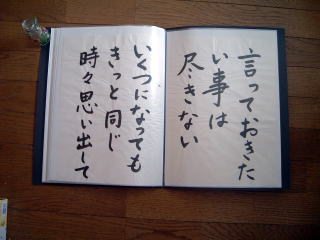 言っておきた
い事は
尽きない
いくつになっても
きっと同じ
時々思い出して